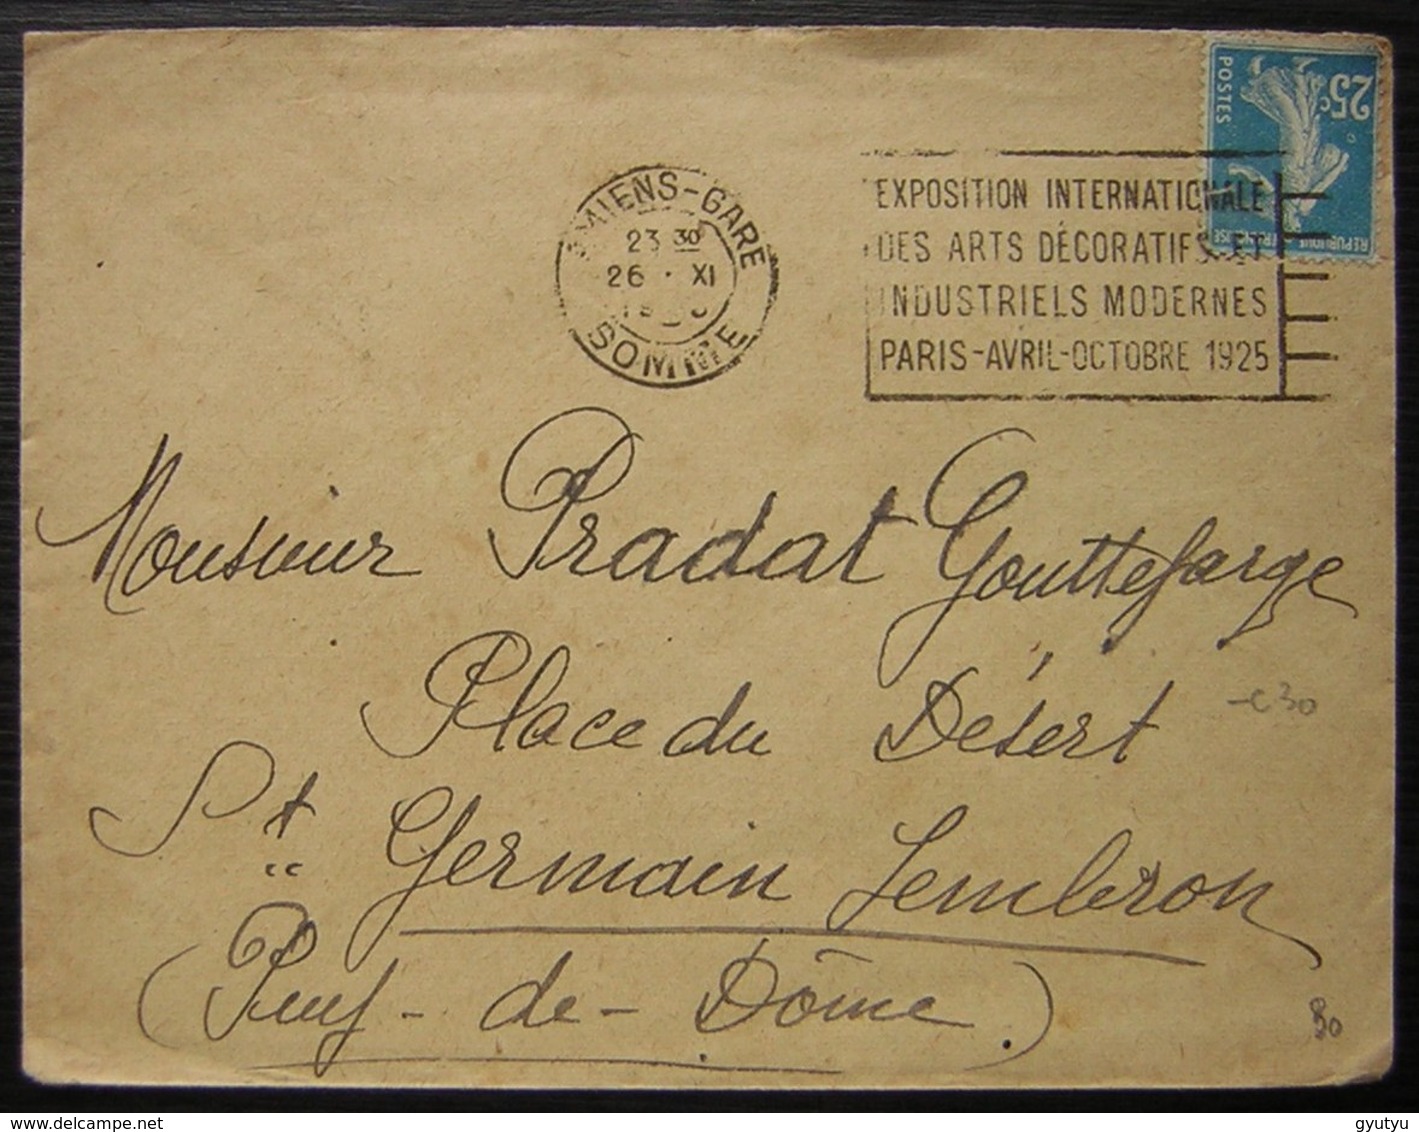 25c
POSTES
RÉPUBLIQUE FRANÇAISE
AMIENS-GARE
23 30
26 · XI
SOMME
EXPOSITION INTERNATIONALE
DES ARTS DÉCORATIFS ET
INDUSTRIELS MODERNES
PARIS-AVRIL-OCTOBRE 1925
Monsieur Pradat Gouttefarge
Place du Désert
St Germain Lembron
(Puy-de-Dôme)
30
80
delcampe.net
gyutyu